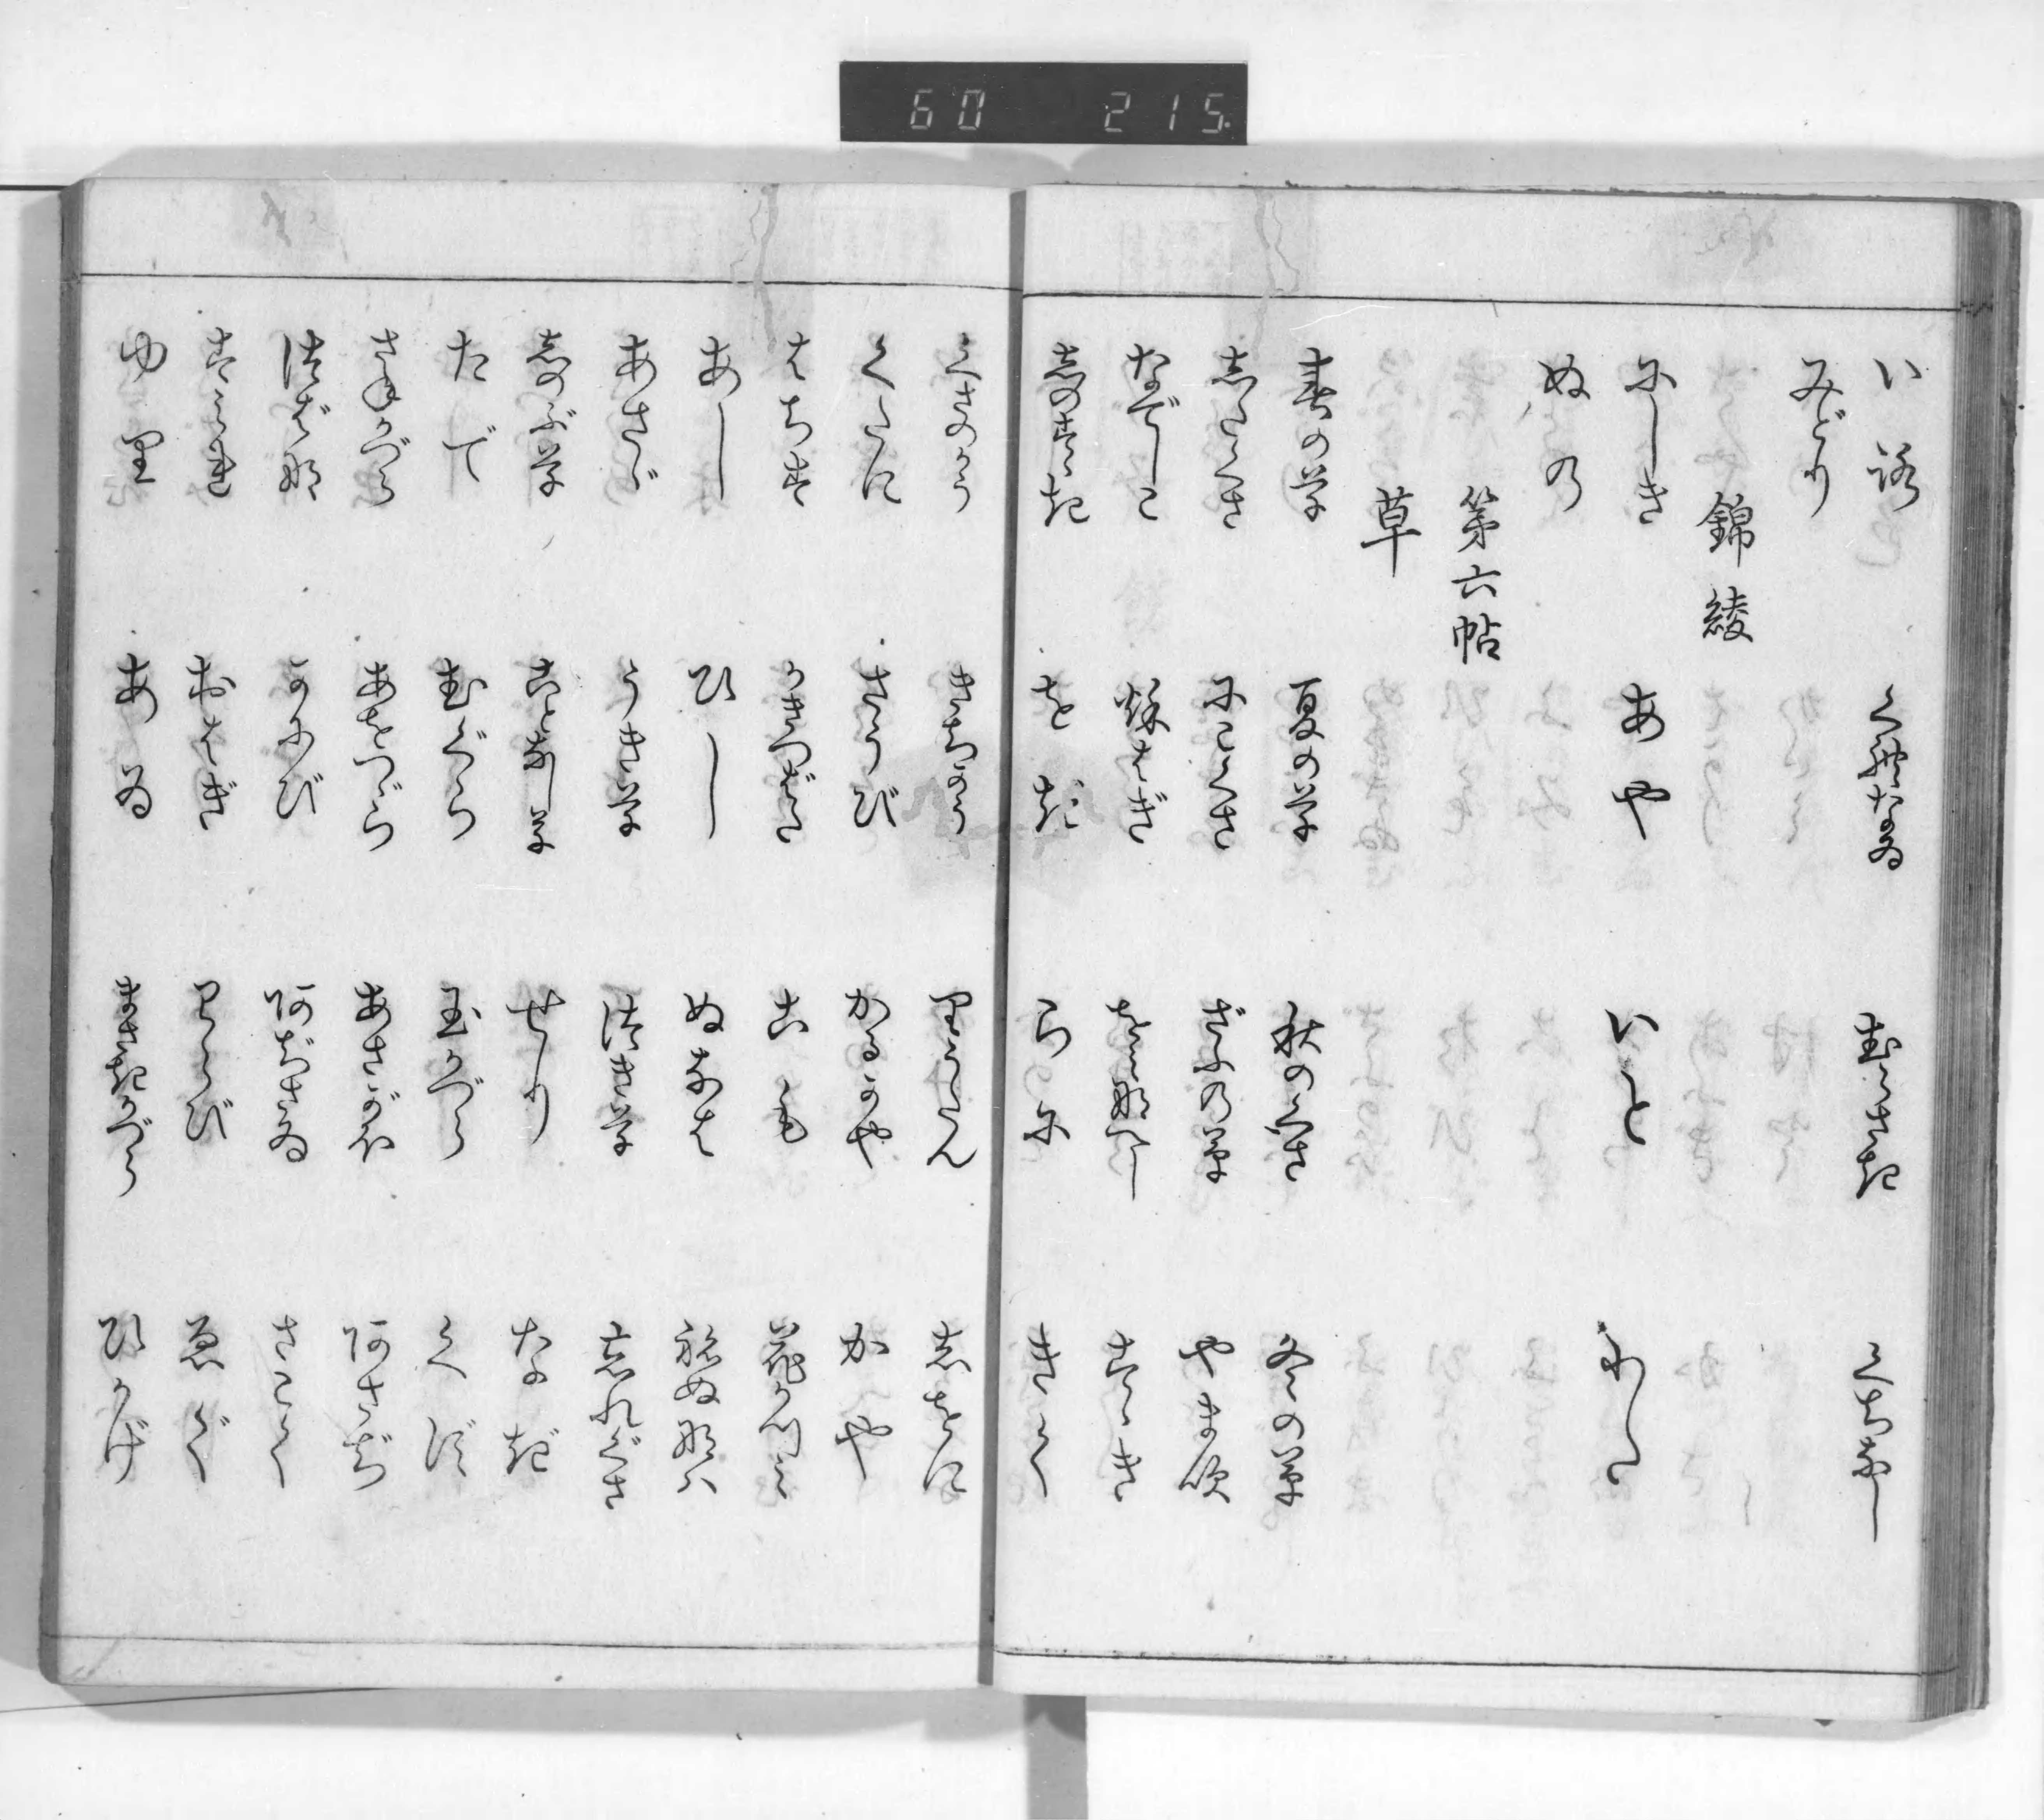 い路　くれなゐ　むらさき　くちなし
みどり
錦綾
にしき　あや　いと　わた
ぬの
第六帖
草
春の草　夏の草　秋のくさ　冬の草
したくさ　にこくさ　ざふの草　やま吹
なでしこ　秋はぎ　をみなへし　すゝき
しのすゝき　をぎ　らに　きく
くさのかう　きちかう　りうたん　しをに
くたに　さうび　かるかや　かや
はちす　かきつばた　こも　花かつみ
あし　ひし　ぬなは　ねぬなは
あさゝ　うき草　つき草　忘れぐさ
しのぶ草　ことなし草　せり　なぎ
たで　むぐら　玉かづら　くず
さねかづら　あをつづら　あさがほ　あさぢ
つばな　かにひ　あぢさゐ　さこく
すみれ　おはぎ　わらび　ゑぐ
ゆり　あゐ　まさきかづら　ひかげ
60　215